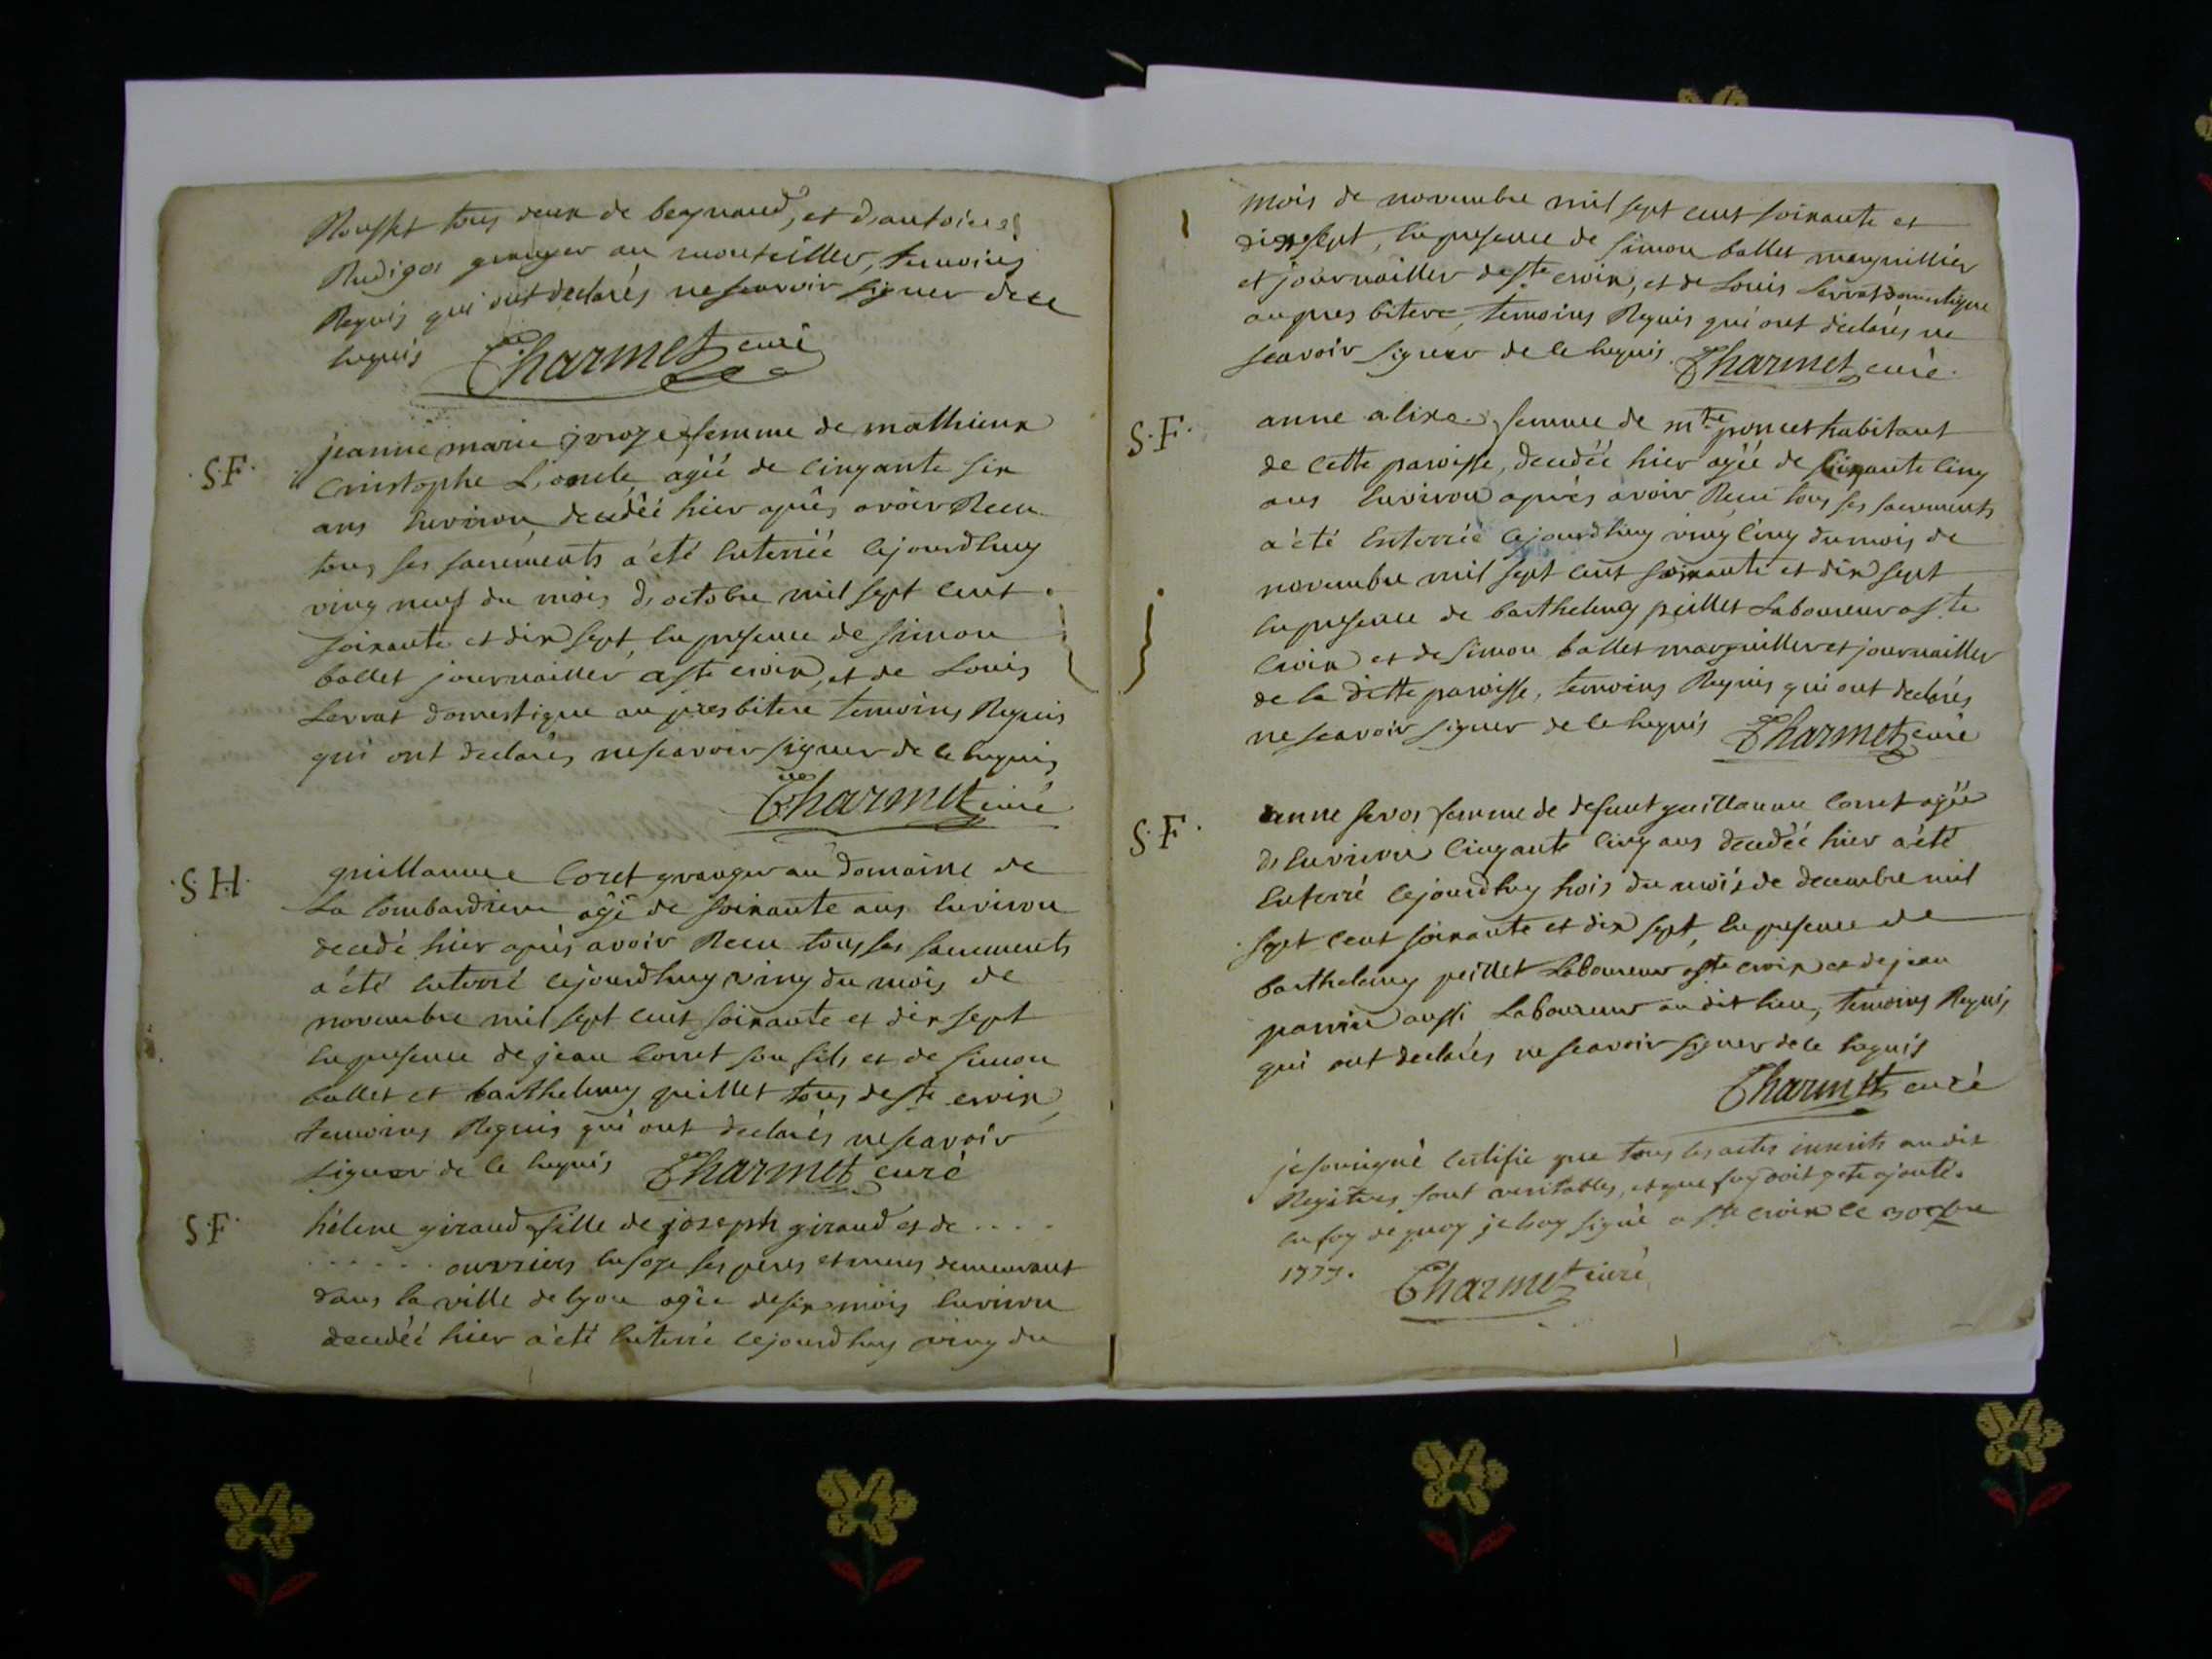 Rousset tous deux de beynaud, et d'antoine
Rudigoi granger au montellier, temoins
Requis qui ont declarés ne scavoir signer de ce
enquis Charmet curé
S.F. jeanne marie femme de mathieux
Cristophe agée de cinqante six
ans environ decedéé hier après avoir Recu
tous ses sacrements a été enterréé cejourdhuy
ving neuf du mois d'octobre mil sept cent
soixante et dix sept, en presence de simon
ballet journaillier a ste croix, et de Louis
Serrat domestique au presbitere temoins Requis
qui ont declarés ne scavoir signer de ce enquis
Charmet curé
S.H. guillaume Coret granger au domaine de
La Lombardiere agé de soixante ans environ
decedé hier après avoir Recu tous ses sacrements
a été enterré cejourdhuy ving du mois de
novembre mil sept cent soixante et dix sept
en presence de jean Corret son fils et de simon
ballet et barthelemy peillet tous de ste croix,
temoins Requis qui ont declarés ne scavoir
signer de ce enquis Charmet curé
S.F. hélene giraud fille de joseph giraud et de ....
...... ouvriers en soye ses peres et meres demeurant
dans la ville de lyon agée de six mois environ
decedéé hier a été enterré cejourdhuy ving du
mois de novembre mil sept cent soixante et
dix sept, en presence de simon ballet marguillier
et journaillier de ste croix, et de Louis Serrat domestique
au presbitere, temoins Requis qui ont declarés ne
scavoir signer de ce enquis. Charmet curé.
S.F. anne alixe femme de mtre poncet habitant
de cette paroisse, decedéé hier agéé de cinq
ans environ après avoir Recu tous ses sacrements
a été Enterréé cejourdhuy ving cinq du mois de
novembre mil sept cent soixante et dix sept
en presence de barthelemy peillet Laboureur a ste
Croix et de simon ballet marguillier et journaillier
de la ditte paroisse, temoins Requis qui ont declarés
ne scavoir signer de ce enquis Charmet curé
S.F. anne femme de defunt guillaume Corret agéé
d'environ cinqante cinq ans decedéé hier a été
Enterré cejourdhuy trois du mois de decembre mil
sept cent soixante et dix sept, en presence de
barthelemy peillet Laboureur a ste croix et de jean
aussi Laboureur au dit lieu, temoins Requis
qui ont declarés ne scavoir signer de ce enquis
Charmet curé
je sousigné certifie que tous les actes inscrits au dit
Registres sont veritables, et que foy doit y ete ajouté.
en foy de quoy je l'ay signé a ste croix le
1777. Charmet curé